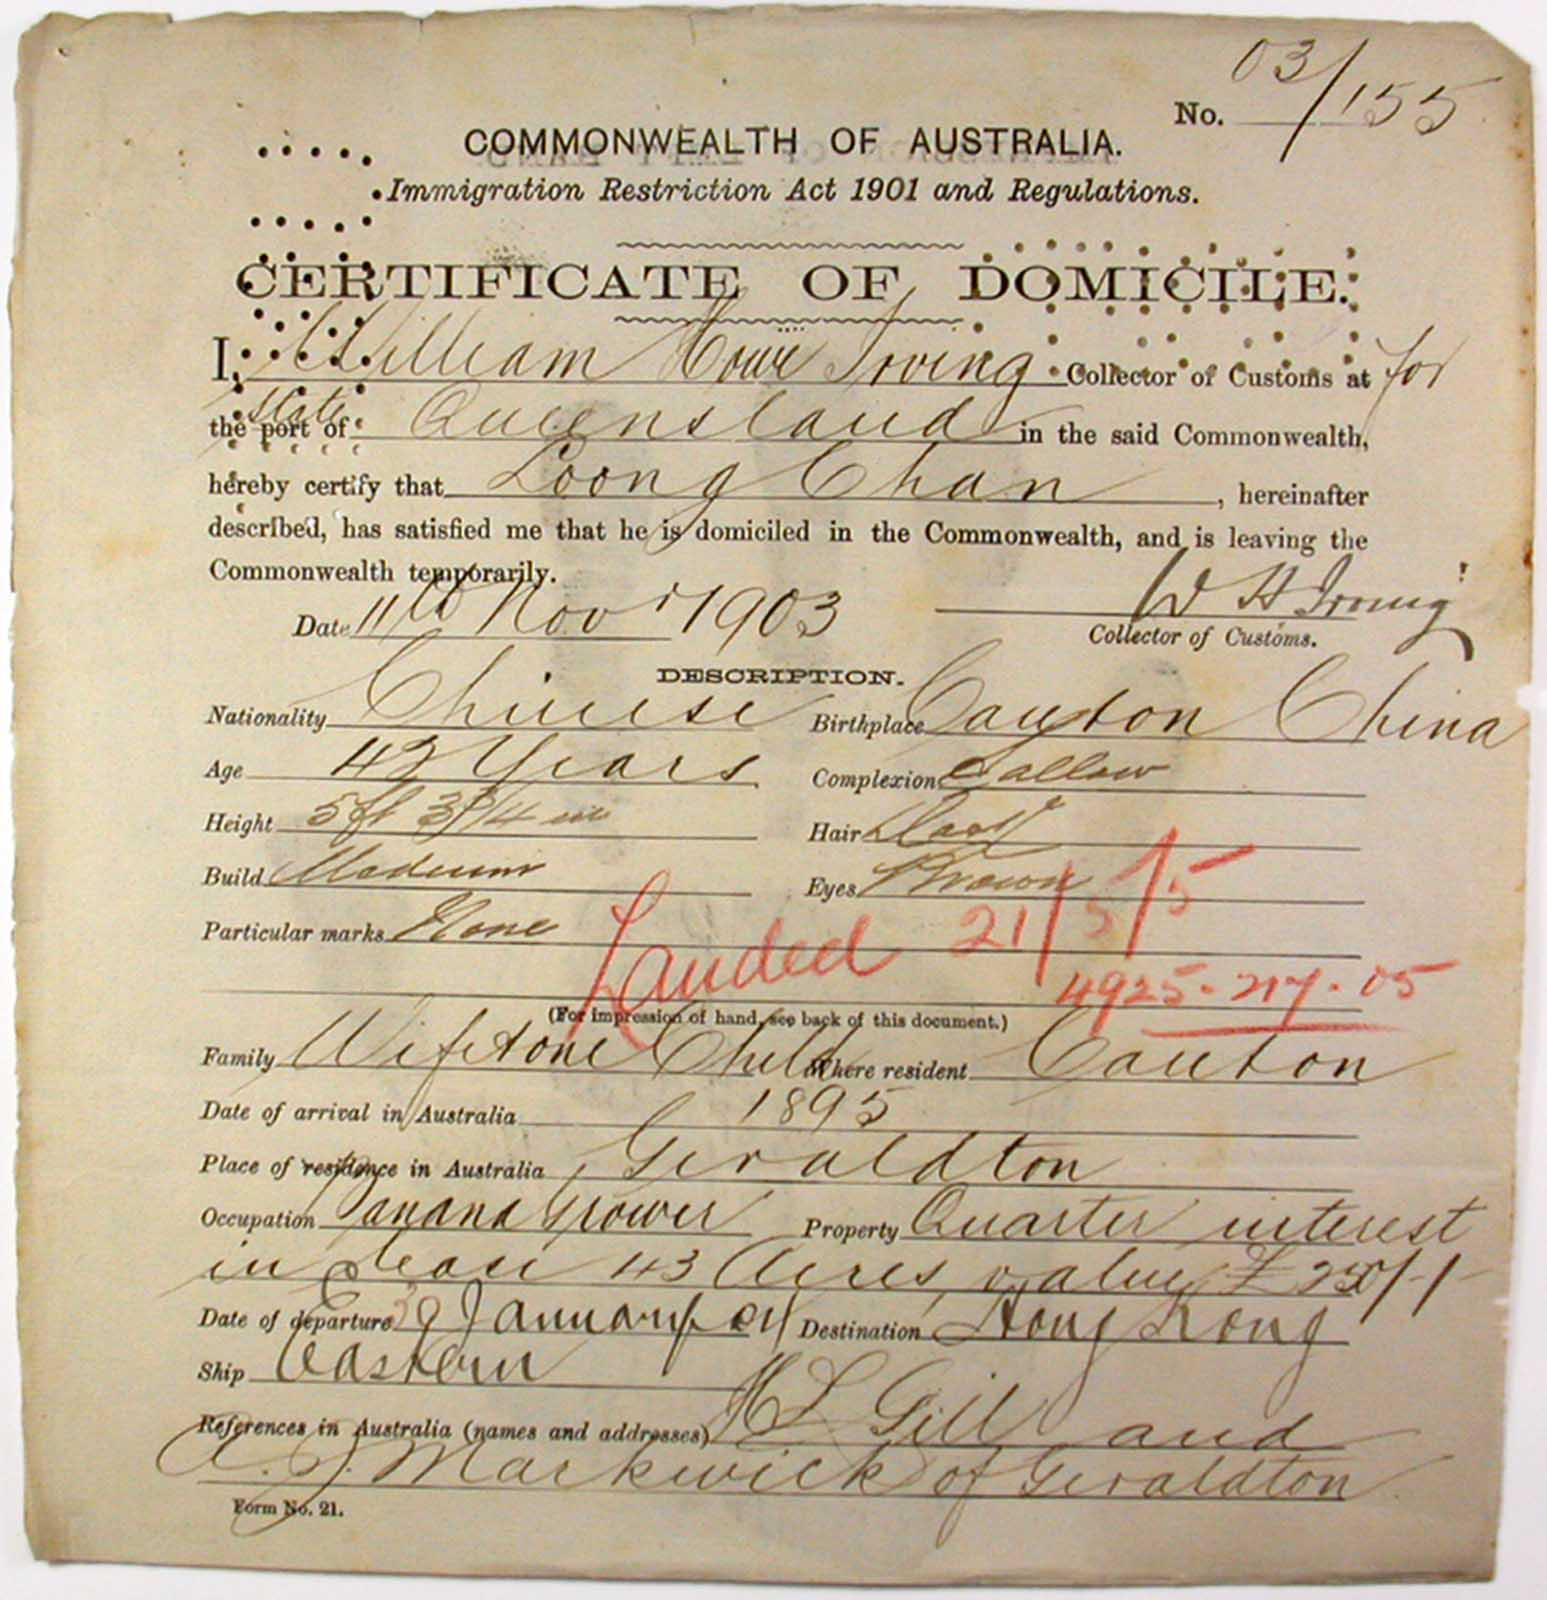 No. 03/155
COMMONWEALTH OF AUSTRALIA.
Immigration Restriction Act 1901 and Regulations.
CERTIFICATE OF DOMICILE.
I, William Irving Collector of Customs at for
the port of state Queensland in the said Commonwealth,
hereby certify that Loong Chan, hereinafter
described, has satisfied me that he is domiciled in the Commonwealth, and is leaving the
Commonwealth temporarily.
Date 11th Novr 1903 W H Irving
Collector of Customs.
DESCRIPTION.
Nationality Chinese Birthplace Canton China
Age 42 Years Complexion Sallow
Height 5 ft 3 3/4 in Hair Dark
Build Medium Eyes Brown
Particular marks None
Landed 21/5/5
4925. 217. 05
(For impression of hand, see back of this document.)
Family Wife & one Child Where resident Canton
Date of arrival in Australia 1895
Place of residence in Australia Geraldton
Occupation Banana Grower Property Quarter interest
in lease 43 Acres, value £250/-/-
Date of departure January 04 Destination Hong Kong
Ship Eastern
References in Australia (names and addresses) Gill and
A. J. Markwick of Geraldton
Form No. 21.